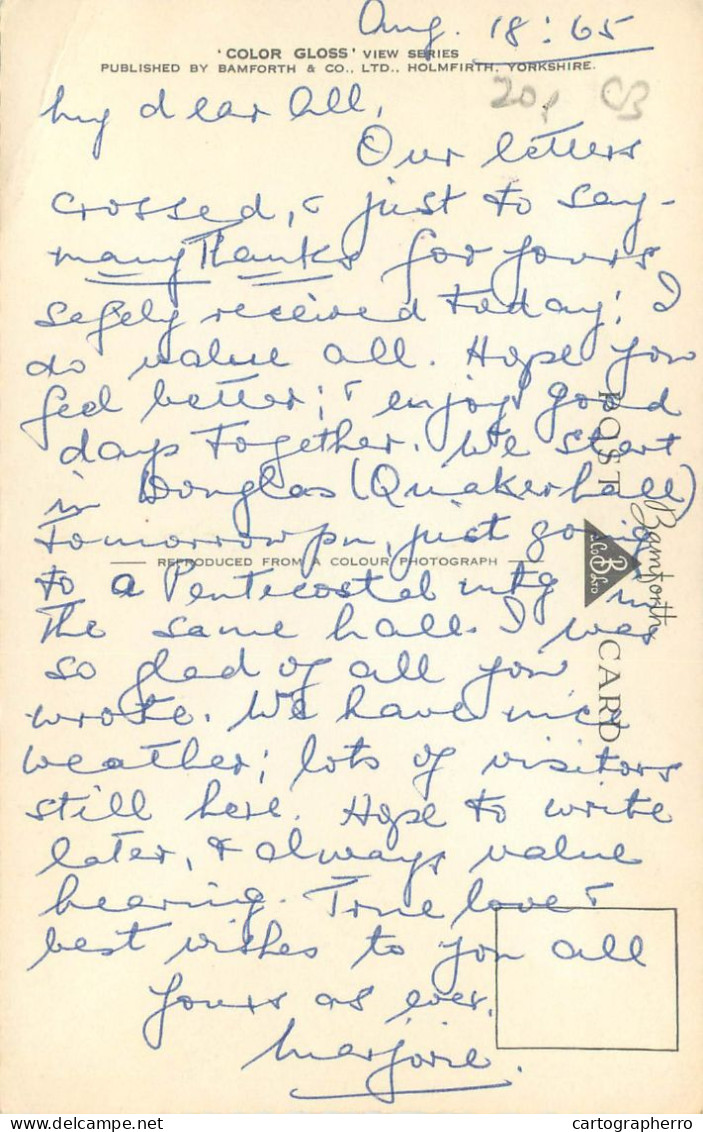 Aug. 18 : 65
'COLOR GLOSS' VIEW SERIES
PUBLISHED BY BAMFORTH & CO., LTD., HOLMFIRTH, YORKSHIRE.
20p CB
My dear All,
Our letters
crossed, & just to say -
many Thanks for yours
safely received today; I
do value all. Hope you
feel better; & enjoy good
days together. We start
in Douglas (Quakerhall)
Tomorrow pm, just going
REPRODUCED FROM A COLOUR PHOTOGRAPH
to a Pentecostal mtg in
The same hall. I was
so glad of all you
wrote. We have nice
weather; lots of visitors
still here. Hope to write
later, & always value
hearing. True love &
best wishes to you all
Yours as ever,
Marjorie.
POST CARD
Bamforth
B & Co LTD
cartographerro